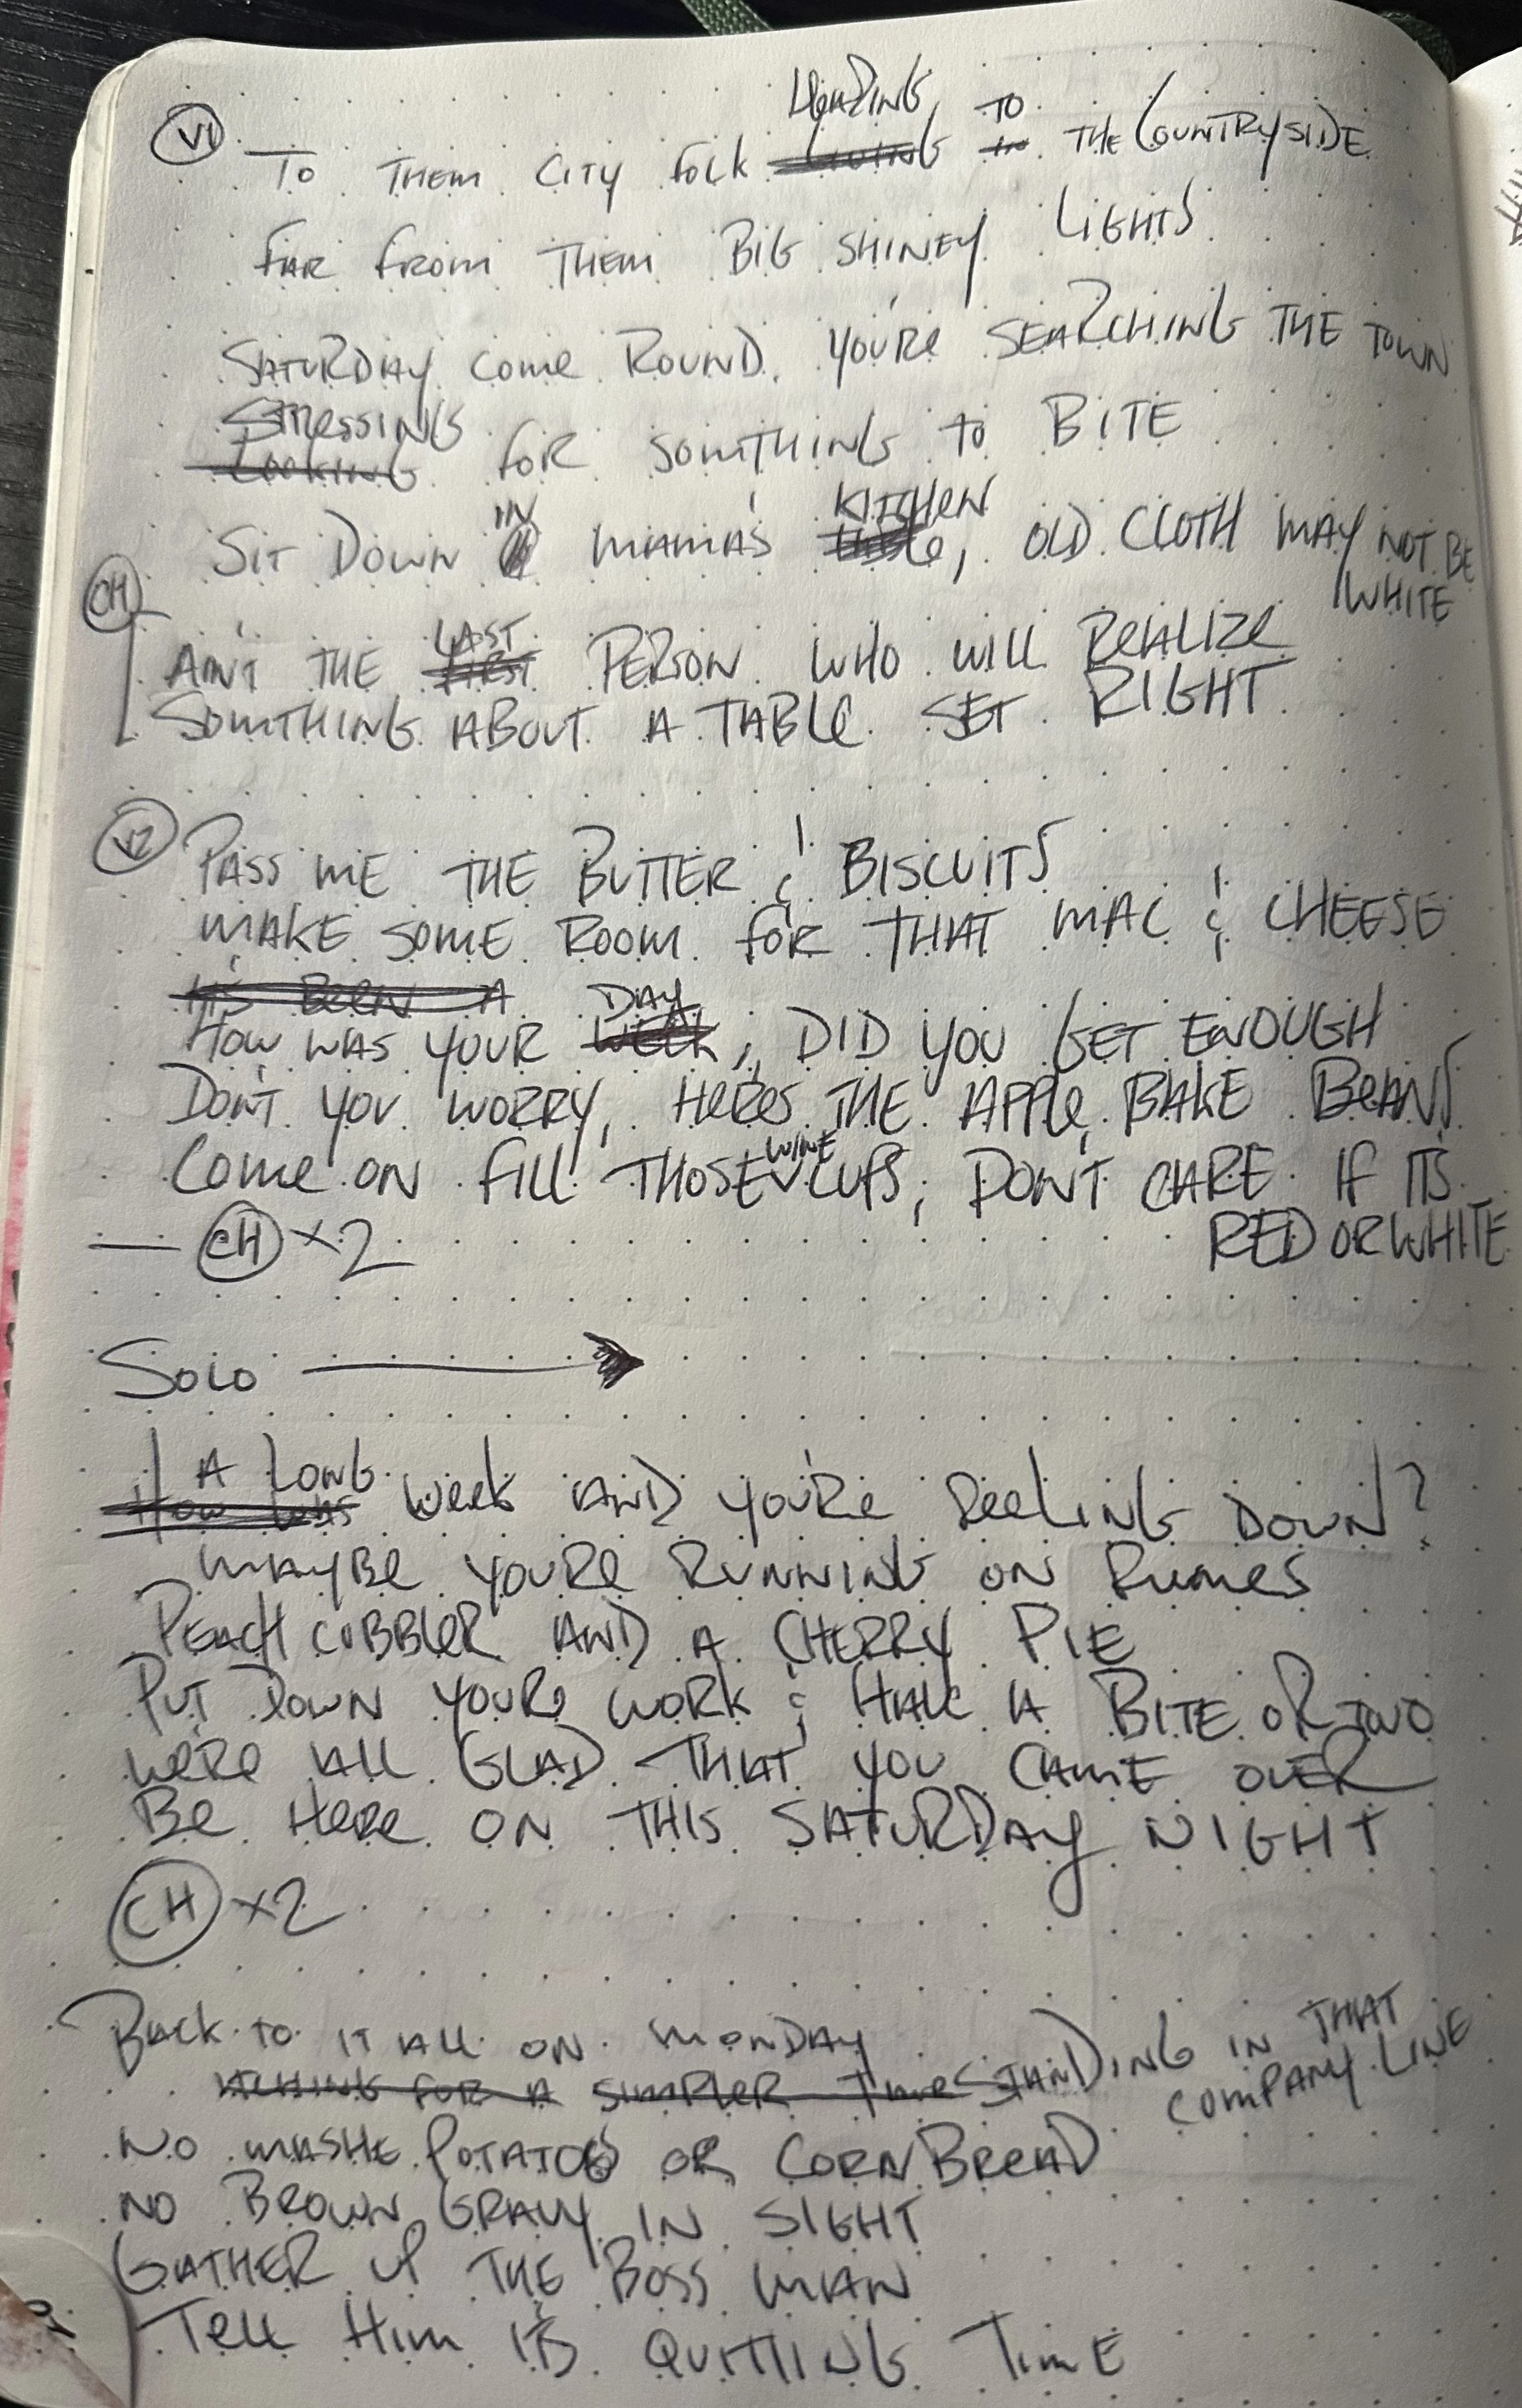 HEADING TO
V1 TO THEM CITY FOLK LIVING IN THE COUNTRYSIDE
FAR FROM THEM BIG SHINEY LIGHTS
SATURDAY COME ROUND, YOU'RE SEARCHING THE TOWN
STRESSING
LOOKING FOR SOMTHING TO BITE
IN KITCHEN
SIT DOWN MAMA'S TABLE, OLD CLOTH MAY NOT BE
WHITE
CH
LAST
AIN'T THE FIRST PERSON WHO WILL REALIZE
SOMTHING ABOUT A TABLE SET RIGHT
V2 PASS ME THE BUTTER & BISCUITS
MAKE SOME ROOM FOR THAT MAC & CHEESE
IT'S BEEN A DAY
HOW WAS YOUR WEEK, DID YOU GET ENOUGH
DON'T YOU WORRY, HERES THE APPLE BAKE BEANS
WINE
COME ON FILL THOSE CUPS, DON'T CARE IF IT'S
RED OR WHITE
— CH x2
SOLO →
A LONG
HOW WAS WEEK AND YOU'RE FEELING DOWN?
MAYBE YOURE RUNNING ON FUMES
PEACH COBBLER AND A CHERRY PIE
PUT DOWN YOUR WORK & HAVE A BITE OR TWO
WE'RE ALL GLAD THAT YOU CAME OVER
BE HERE ON THIS SATURDAY NIGHT
CH x2
BACK TO IT ALL ON MONDAY
FOR A SIMPLER TIME STANDING IN THAT
COMPANY LINE
NO MASHE POTATOS OR CORNBREAD
NO BROWN GRAVY IN SIGHT
GATHER UP THE BOSS MAN
TELL HIM IT'S QUITTING TIME